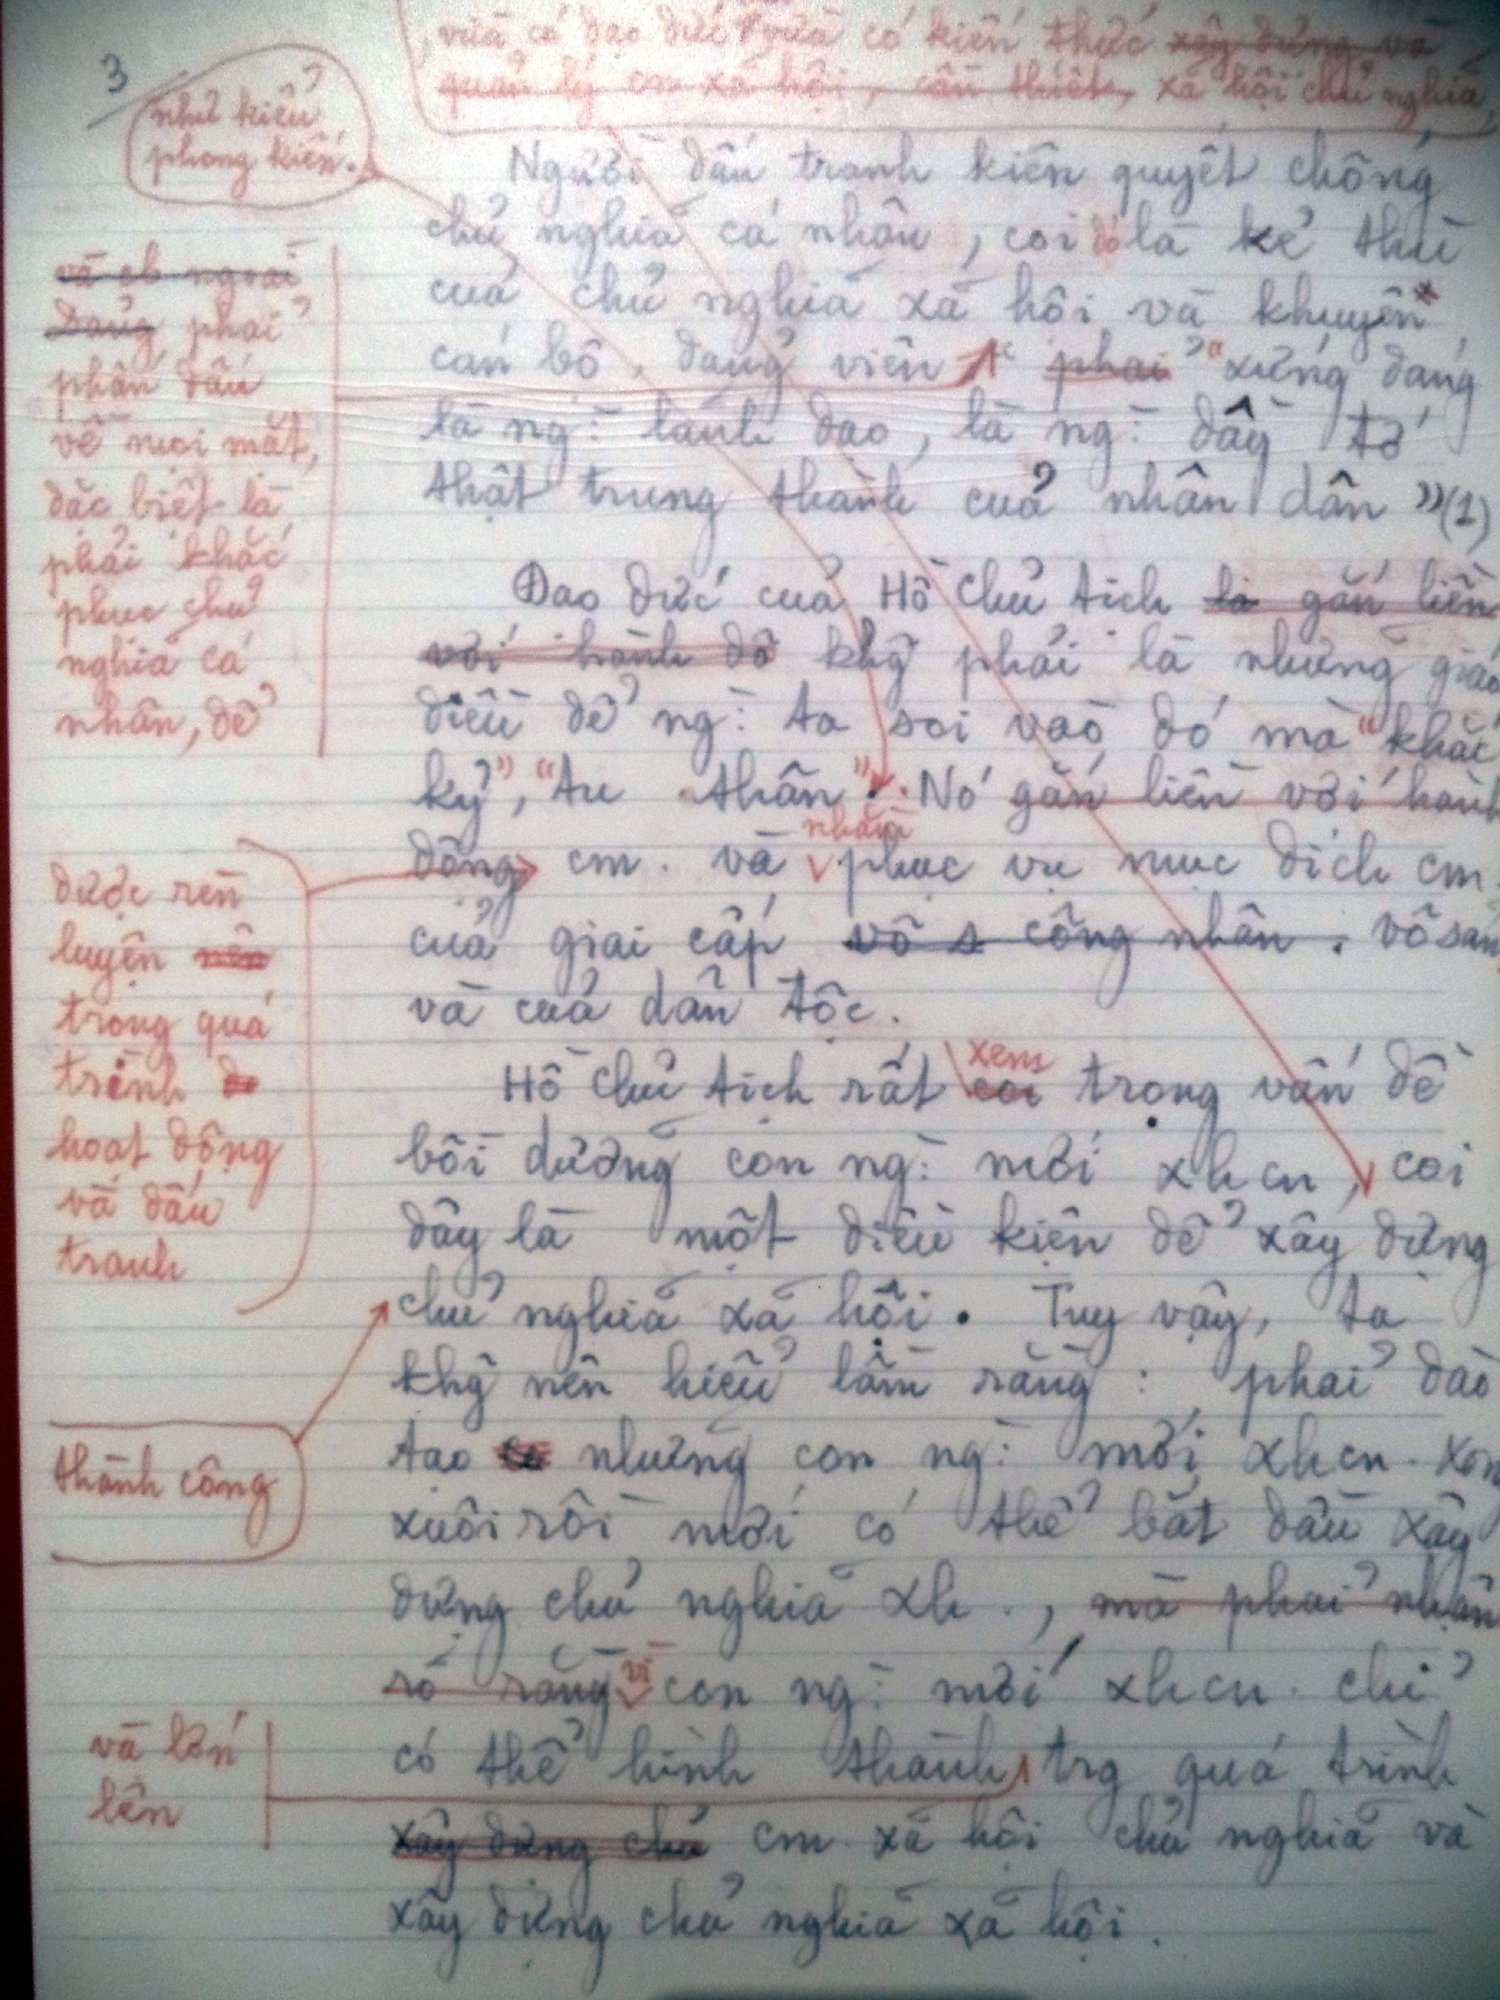 3
, vừa có đạo đức vừa có kiến thức xây dựng và
quản lý xã hội, cần thiết, xã hội chủ nghĩa,
như kiểu
phong kiến.
Người đấu tranh kiên quyết chống
chủ nghĩa cá nhân, coi đó là kẻ thù
của chủ nghĩa xã hội và khuyên
cán bộ, đảng viên " phải " xứng đáng
là ng: lãnh đạo, là ng: đầy tớ
thật trung thành của nhân dân "(1)
và cb ngoài
Đảng phải
phấn đấu
về mọi mặt,
đặc biệt là
phải khắc
phục chủ
nghĩa cá
nhân, để
Đạo đức của Hồ Chủ tịch là gắn liền
với hành độ khg phải là những giáo
điều để ng: ta soi vào đó mà "khắc
kỷ", "tu thân". Nó gắn liền với hành
động cm. và nhằm phục vụ mục đích cm
của giai cấp vô s công nhân. vô sản
và của dân tộc.
được rèn
luyện nên
trong quá
trình
hoạt động
và đấu
tranh
Hồ Chủ tịch rất xem coi trọng vấn đề
bồi dưỡng con ng: mới xhcn, coi
đây là một điều kiện để xây dựng
chủ nghĩa xã hội. Tuy vậy, ta
khg nên hiểu lầm rằng: phải đào
tạo những con ng: mới xhcn. xong
xuôi rồi mới có thể bắt đầu xây
dựng chủ nghĩa xh., mà phải nhận
rõ rằng vì con ng: mới xhcn. chỉ
có thể hình thành trg quá trình
xây dựng chủ cm. xã hội chủ nghĩa và
xây dựng chủ nghĩa xã hội.
thành công
và lớn
lên